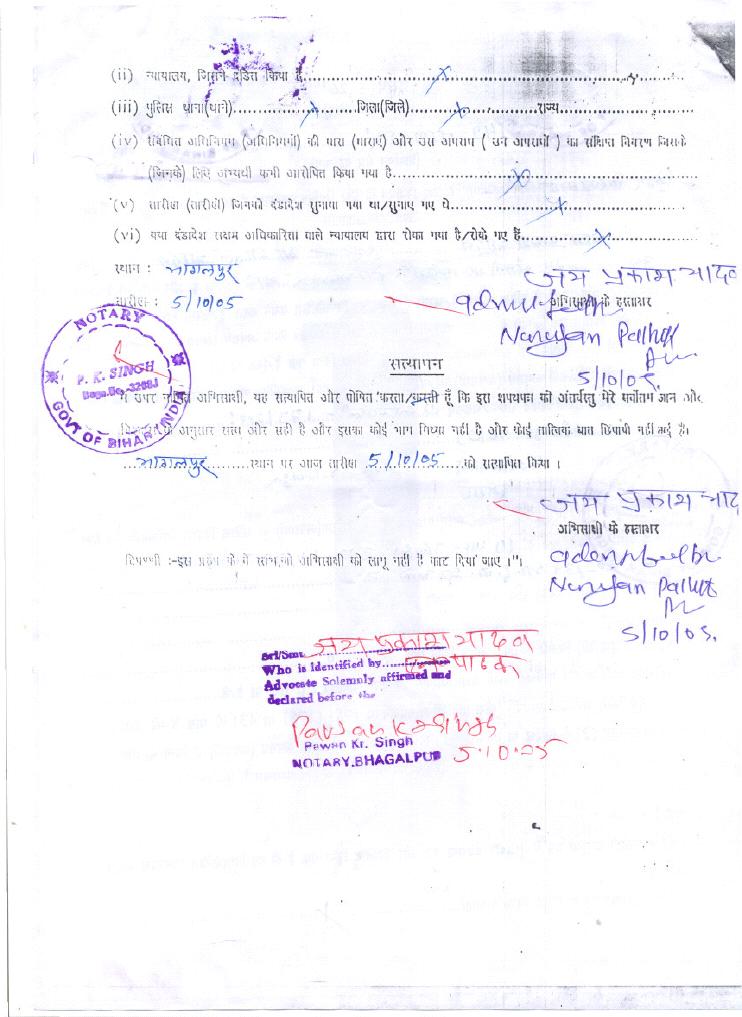 (ii) न्यायालय, जिसने दंडित किया है
(iii) पुलिस थाना(थाने)..................जिला(जिले)..................राज्य
(iv) संबंधित अधिनियम (अधिनियमों) की धारा (धाराएं) और उस अपराध ( उन अपराधों ) का संक्षिप्त विवरण जिसके
(जिनके) लिए अभ्यर्थी कभी आरोपित किया गया है
(v) तारीख (तारीखें) जिनको दंडादेश सुनाया गया था/सुनाए गए थे
(vi) क्या दंडादेश सक्षम अधिकारिता वाले न्यायालय द्वारा रोका गया है/रोके गए हैं
स्थान : भागलपुर
जय प्रकाश यादव
तारीख : 5/10/05
अभिसाक्षी के हस्ताक्षर
NOTARY
P. K. SINGH
GOVT OF BIHAR INDIA
Narayan Pathak
5/10/05.
सत्यापन
मैं उपर अभिसाक्षी, यह सत्यापित और घोषित करता/करती हूँ कि इस शपथपत्र की अंतर्वस्तु मेरे सर्वोतम ज्ञान और
के अनुसार सत्य और सही है और इसका कोई भाग मिथ्या नहीं है और कोई तात्विक बात छिपायी नहीं गई है।
भागलपुर..........स्थान पर आज तारीख 5/10/05......को सत्यापित किया ।
जय प्रकाश याद
अभिसाक्षी के हस्ताक्षर
टिपण्णी :-इस प्ररूप के वे स्तंभ जो अभिसाक्षी को लागू नहीं है काट दिया जाए ।"।
Narayan Pathak
5/10/05.
Sri/Smt. जय प्रकाश यादव
Who is Identified by...... पाठक
Advocate Solemnly affirmed and
declared before the
Pawan Kr Singh
Pawan Kr. Singh
NOTARY, BHAGALPUR 5.10.05